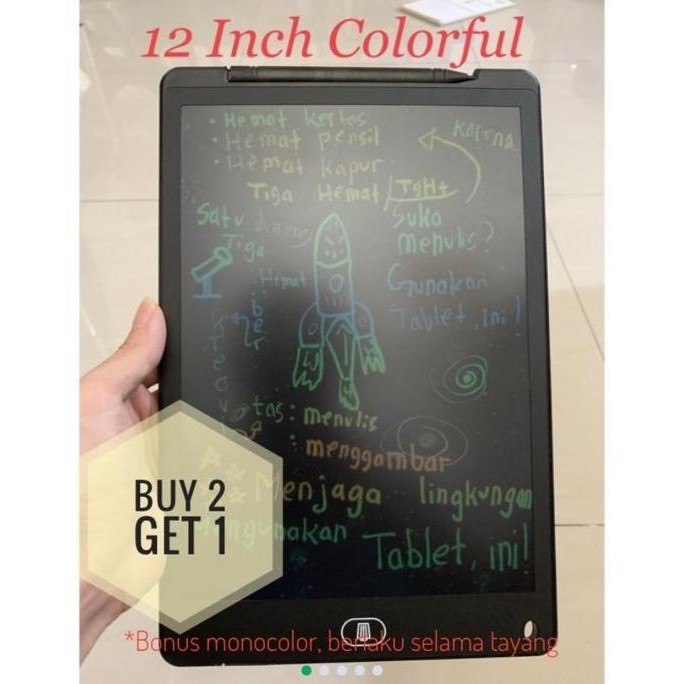 12 Inch Colorful
• Hemat kertas
• Hemat pensil
• Hemat kapur
Karena
Tiga Hemat TgHt
Satu
Tiga
Hemat
Suka
menulis?
Gunakan
Tablet, ini!
tas: menulis
: menggambar
Menjaga lingkungan
Tablet, ini!
BUY 2
GET 1
*Bonus monocolor, berlaku selama tayang